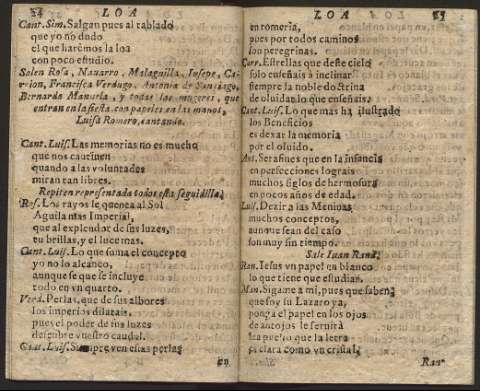 24 LOA
Cant. Sim. Salgan pues al tablado
que yo no dudo
el que harèmos la loa
con poco estudio.
Salen Rosa, Nauarro, Malaguilla, Iusepe, Ca-
rrion, Francisca Verdugo, Antonia de Santiago,
Bernarda Manuela, y todas las mugeres, que
entran en la fiesta con papeles en las manos,
Luisa Romero, cantando.
Cant. Luis. Las memorias no es mucho
que nos cautiuen
quando a las voluntades
miran tan libres.
Repiten representado todos esta seguidilla.
Ros. Los rayos le quenea al Sol
Aguila mas Imperial,
que al explendor de sus luzes,
tu brillas, y el luce mas.
Cant. Luis. Lo que suma el concepto
yo no lo alcanço,
aunque se que se incluye
todo en vn quarto.
Verd. Perlas, que de sus albores
los imperios dilatais,
pues el poder de sus luzes
descubre vuestro caudal.
Cant. Luis. Siempre ven essas perlas
LOA
en romeria,
pues por todos caminos
son peregrinas.
Carr. Estrellas que deste cielo
solo enseñais à inclinar
siempre la noble dotrina
de oluidar lo que enseñais.
Cant. Luis. Lo que mas ha ilustrado
los Beneficios
es dexar la memoria
por el oluido.
Ant. Serafines que en la infancia
en perfecciones lograis
muchos siglos de hermosura
en pocos años de edad.
Luis. Dezir a las Meninas
muchos conceptos,
aunque sean del caso
son muy sin tiempo.
Sale Iuan Rana.
Ran. Iesus vn papel en blanco
lo que tiene que estudiar.
Man. Sigame a mi, pues que saben
que soy su Lazaro ya,
ponga el papel en los ojos
de antojos le seruirà
que la letra
es clara como vn cristal.
Ran.